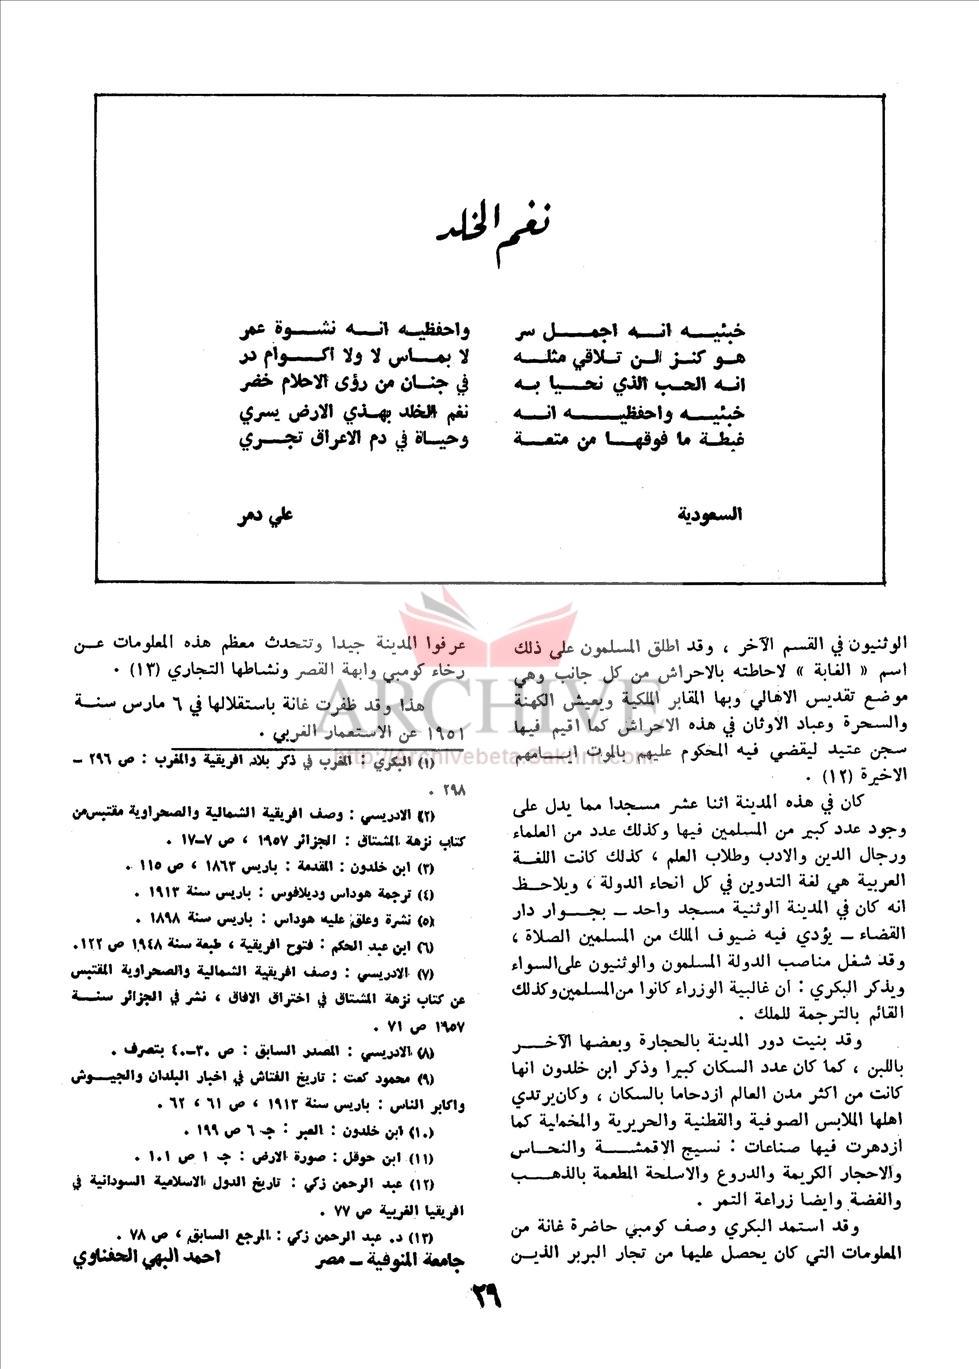 نغم الخلد
خبئيه انه اجمل سر واحفظيه انه نشوة عمر
هو كنز لن تلاقي مثله لا بماس لا ولا اكوام در
انه الحب الذي نحيا به في جنان من رؤى الاحلام خضر
خبئيه واحفظيه انه نغم الخلد بهذي الارض يسري
غبطة ما فوقها من متعة وحياة في دم الاعراق تجري
السعودية علي دمر
الوثنيون في القسم الآخر ، وقد اطلق المسلمون على ذلك
اسم « الغابة » لاحاطته بالاحراش من كل جانب وهي
موضع تقديس الاهالي وبها المقابر الملكية ويعيش الكهنة
والسحرة وعباد الأوثان في هذه الاحراش كما اقيم فيها
سجن عتيد ليقضي فيه المحكوم عليهم بالموت ايامهم
الاخيرة (١٢) .
كان في هذه المدينة اثنا عشر مسجدا مما يدل على
وجود عدد كبير من المسلمين فيها وكذلك عدد من العلماء
ورجال الدين والادب وطلاب العلم ، كذلك كانت اللغة
العربية هي لغة التدوين في كل انحاء الدولة ، ويلاحظ
انه كان في المدينة الوثنية مسجد واحد – بجوار دار
القضاء – يؤدي فيه ضيوف الملك من المسلمين الصلاة ،
وقد شغل مناصب الدولة المسلمون والوثنيون على السواء
ويذكر البكري : ان غالبية الوزراء كانوا من المسلمين وكذلك
القائم بالترجمة للملك .
وقد بنيت دور المدينة بالحجارة وبعضها الآخر
باللبن ، كما كان عدد السكان كبيرا وذكر ابن خلدون انها
كانت من اكثر مدن العالم ازدحاما بالسكان ، وكان يرتدي
اهلها الملابس الصوفية والقطنية والحريرية والمخملية كما
ازدهرت فيها صناعات : نسيج الاقمشة والنحاس
والاحجار الكريمة والدروع والاسلحة المطعمة بالذهب
والفضة وايضا زراعة التمر .
وقد استمد البكري وصف كومبي حاضرة غانة من
المعلومات التي كان يحصل عليها من تجار البربر الذين
عرفوا المدينة جيدا وتتحدث معظم هذه المعلومات عن
رخاء كومبي وابهة القصر ونشاطها التجاري (١٣) .
هذا وقد ظفرت غانة باستقلالها في ٦ مارس سنة
١٩٥١ عن الاستعمار الغربي .
(١) البكري : المغرب في ذكر بلاد افريقية والمغرب : ص ٢٩٦ –
٢٩٨ .
(٢) الادريسي : وصف افريقية الشمالية والصحراوية مقتبس من
كتاب نزهة المشتاق : الجزائر ١٩٥٧ ، ص ٧–١٧ .
(٣) ابن خلدون : المقدمة : باريس ١٨٦٣ ، ص ١١٥ .
(٤) ترجمة هوداس وديلافوس : باريس سنة ١٩١٣ .
(٥) نشرة وعلق عليه هوداس : باريس سنة ١٨٩٨ .
(٦) ابن عبد الحكم : فتوح افريقية ، طبعة سنة ١٩٤٨ ص ١٢٢ .
(٧) الادريسي : وصف افريقية الشمالية والصحراوية المقتبس
عن كتاب نزهة المشتاق في اختراق الافاق ، نشر في الجزائر سنة
١٩٥٧ ص ٧١ .
(٨) الادريسي : المصدر السابق : ص ٣٠–٤٠ بتصرف .
(٩) محمود كعت : تاريخ الفتاش في اخبار البلدان والجيوش
واكابر الناس : باريس سنة ١٩١٣ ، ص ٦١ ، ٦٢ .
(١٠) ابن خلدون : العبر : جـ ٦ ص ١٩٩ .
(١١) ابن حوقل : صورة الارض : جـ ١ ص ١٠١ .
(١٢) عبد الرحمن زكي : تاريخ الدول الاسلامية السودانية في
افريقيا الغربية ص ٧٧ .
(١٣) د. عبد الرحمن زكي : المرجع السابق ، ص ٧٨ .
جامعة المنوفية – مصر احمد البهي الحفناوي
٢٩
ARCHIVE
http://Archivebeta.Sakhrit.com